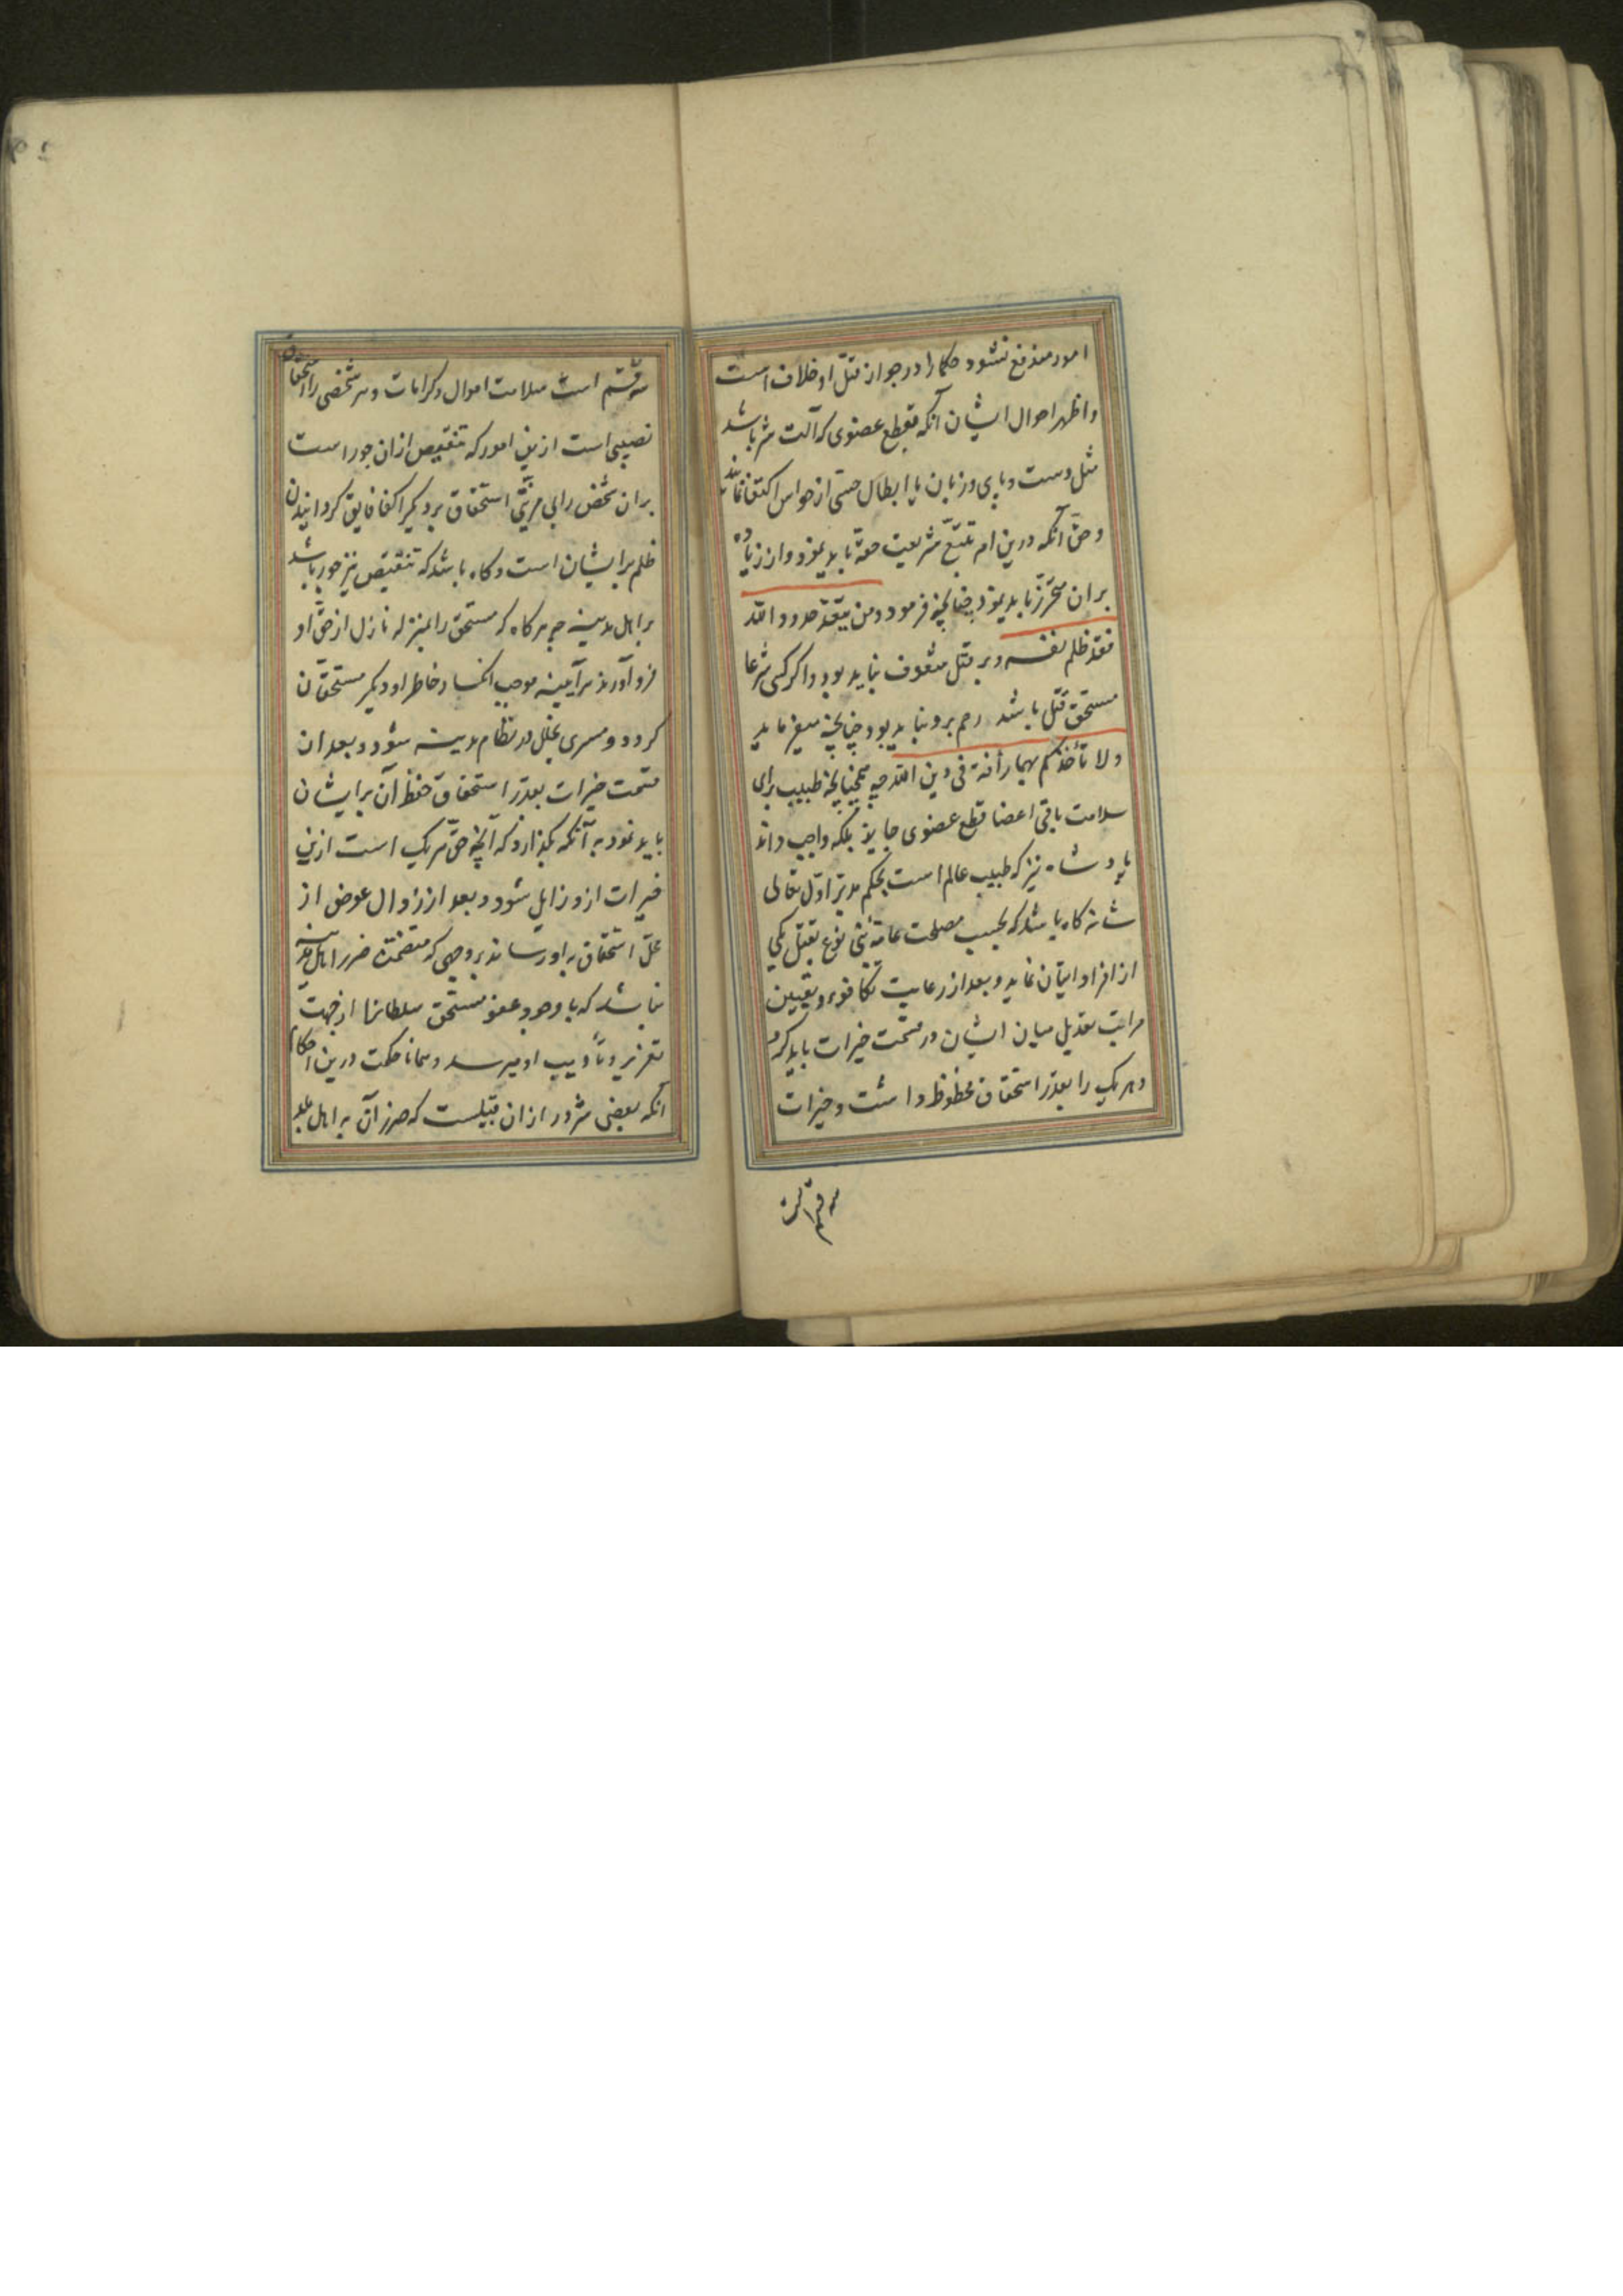 امور مندفع نشود حکما را در جواز قتل او خلاف است
و اظهر احوال ایشان آنکه بقطع عضوی که آلت شر باشد
مثل دست و پای و زبان یا ابطال حسی از حواس اکتفا نمایند
و حق آنکه درین امر تتبع شریعت حقه باید نمود و از زیاده
بران محترز باید بود چنانچه فرمود و من یتعد حدود الله
فقد ظلم نفسه و بر قتل مشعوف نباید بود و اگر کسی شرعا
مستحق قتل باشد رحم برو نباید بود چنانچه میفرماید
ولا تأخذکم بهما رأفة فی دین الله چه همچنانچه طبیب برای
سلامت باقی اعضا قطع عضوی جایز بلکه واجب داند
پادشاه نیز که طبیب عالم است بحکم مدبر اول تعالی
شانه گاه باشد که بحسب مصلحت عامه بنی نوع بقتل یکی
از افراد ایشان نماید و بعد از رعایت تکافو و تعیین
مراتب تعدیل میان ایشان در قسمت خیرات باید کرد
و هر یک را بقدر استحقاق محظوظ داشت و خیرات
سه قسم است
سه قسم است سلامت اموال و کرامات و هر شخصی را استحقاق
نصیبی است ازین امور که تنقیص ازان جور است
بران شخص را بی مزیتی استحقاق بر دیگر اکفا فایق گردانیدن
ظلم بر ایشان است و گاه باشد که تنقیص نیز جور باشد
بر اهل مدینه چه هرگاه که مستحق را بمنزله نازل از حق او
فرو آورند هرآیینه موجب انکسار خاطر او و دیگر مستحقان
گردد و مسری بخلل در نظام مدینه شود و بعد ان
قسمت خیرات بقدر استحقاق حفظ آن بر ایشان
باید نمود به آنکه نگذارد که آنچه حق هر یک است ازین
خیرات ازو زایل شود و بعد از زوال عوض از
محل استحقاق به او رساند بروجهی که متضمن ضرر اهل مدینه
نباشد که با وجود عفو مستحق سلطانرا از جهت
تعزیر و تأدیب او میرسد و همانا حکمت درین احکام
آنکه بعضی شرور ازان قبیلست که ضرر آن به اهل بلد